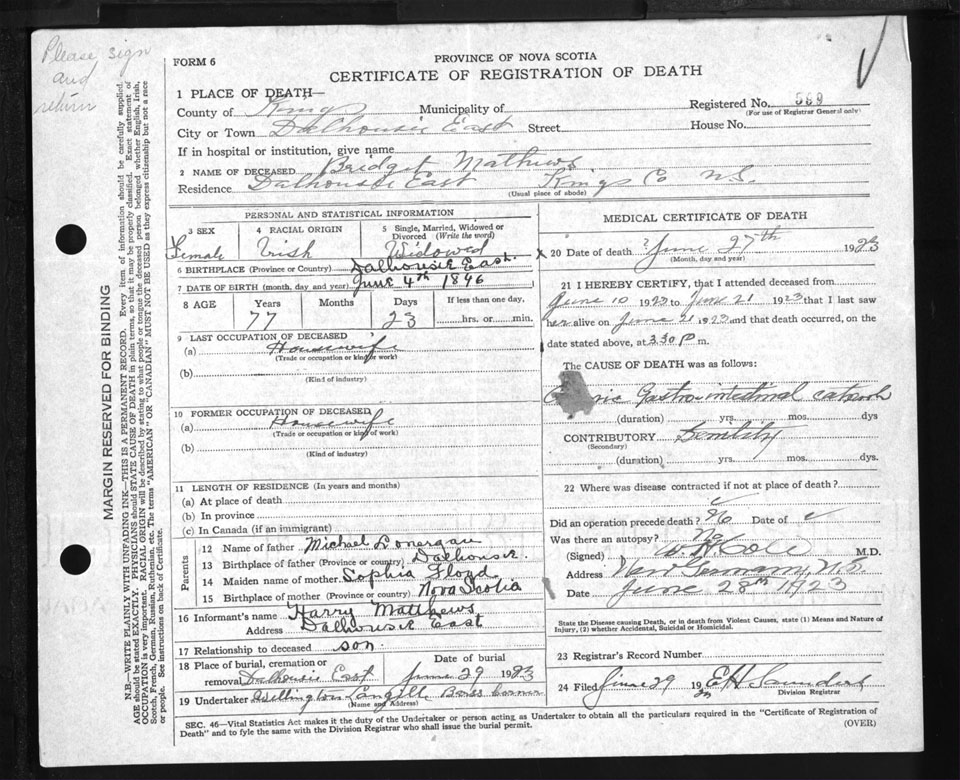 Please sign
and
return
FORM 6
PROVINCE OF NOVA SCOTIA
CERTIFICATE OF REGISTRATION OF DEATH
1 PLACE OF DEATH—
County of Kings Municipality of
Registered No. 599
(For use of Registrar General only)
City or Town Dalhousie East Street House No.
If in hospital or institution, give name
2 NAME OF DECEASED Bridget Mathews
Residence Dalhousie East Kings Co N.S.
(Usual place of abode)
PERSONAL AND STATISTICAL INFORMATION
3 SEX
Female
4 RACIAL ORIGIN
Irish
5 Single, Married, Widowed or
Divorced (Write the word)
Widowed
6 BIRTHPLACE (Province or Country) Dalhousie East.
7 DATE OF BIRTH (month, day and year) June 4th 1846
8 AGE Years Months Days If less than one day.
77 23 hrs. or min.
9 LAST OCCUPATION OF DECEASED
(a) Housewife
(Trade or occupation or kind of work)
(b)
(Kind of industry)
10 FORMER OCCUPATION OF DECEASED
(a) Housewife
(Trade or occupation or kind of work)
(b)
(Kind of industry)
11 LENGTH OF RESIDENCE (In years and months)
(a) At place of death
(b) In province
(c) In Canada (if an immigrant)
Parents
12 Name of father Michael Lonergan
13 Birthplace of father (Province or country) Dalhousie.
14 Maiden name of mother Sophia Floyd
15 Birthplace of mother (Province or country) Nova Scotia
16 Informant's name Harry Matthews
Address Dalhousie East
17 Relationship to deceased son.
18 Place of burial, cremation or
removal Dalhousie East
Date of burial
June 29 1923
19 Undertaker Wellington Langille Bass Corner
(Name and Address)
MEDICAL CERTIFICATE OF DEATH
x 20 Date of death ? June 27th 1923
(Month, day and year)
21 I HEREBY CERTIFY, that I attended deceased from
June 10 1923 to June 21 1923 that I last saw
her alive on June 21 1923 and that death occurred, on the
date stated above, at 3.30 P m.
The CAUSE OF DEATH was as follows:
Gastro-intestinal catarrh
(duration) yrs. mos. dys
CONTRIBUTORY
(Secondary)
(duration) yrs. mos. dys.
22 Where was disease contracted if not at place of death?
Did an operation precede death? No Date of
Was there an autopsy? No
(Signed) W H Cole M.D.
Address New Germany, N.S.
June 28th 1923
State the Disease causing Death, or in death from Violent Causes, state (1) Means and Nature of
Injury, (2) whether Accidental, Suicidal or Homicidal.
23 Registrar's Record Number
24 Filed June 29 19 E H Saunders
Division Registrar
SEC. 46—Vital Statistics Act makes it the duty of the Undertaker or person acting as Undertaker to obtain all the particulars required in the "Certificate of Registration of
Death" and to fyle the same with the Division Registrar who shall issue the burial permit.
(OVER)
MARGIN RESERVED FOR BINDING
N.B.—WRITE PLAINLY WITH UNFADING INK—THIS IS A PERMANENT RECORD. Every item of information should be carefully supplied.
AGE should be stated EXACTLY. PHYSICIANS should STATE CAUSE OF DEATH in plain terms, so that it may be properly classified. Exact statement of
OCCUPATION is very important. RACIAL ORIGIN will be described by stating to what people or tongue the deceased person belonged whether English, Irish,
Scotch, French, German, Russian, Ruthenian, etc. The terms "AMERICAN" OR "CANADIAN" MUST NOT BE USED as they express citizenship but not a race
or people. See instructions on back of Certificate.